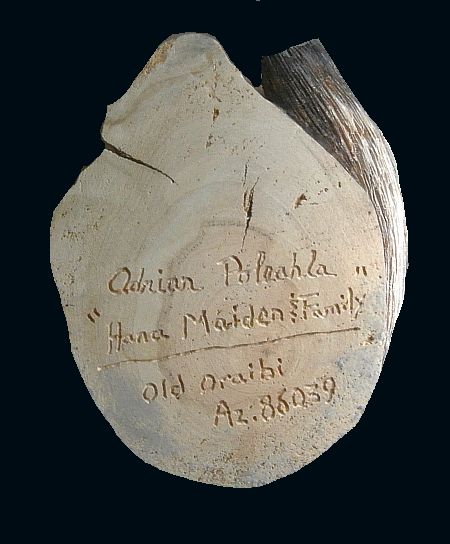 Adrian Poleahla
"Hana Maiden & Family"
Old Oraibi
Az. 86039